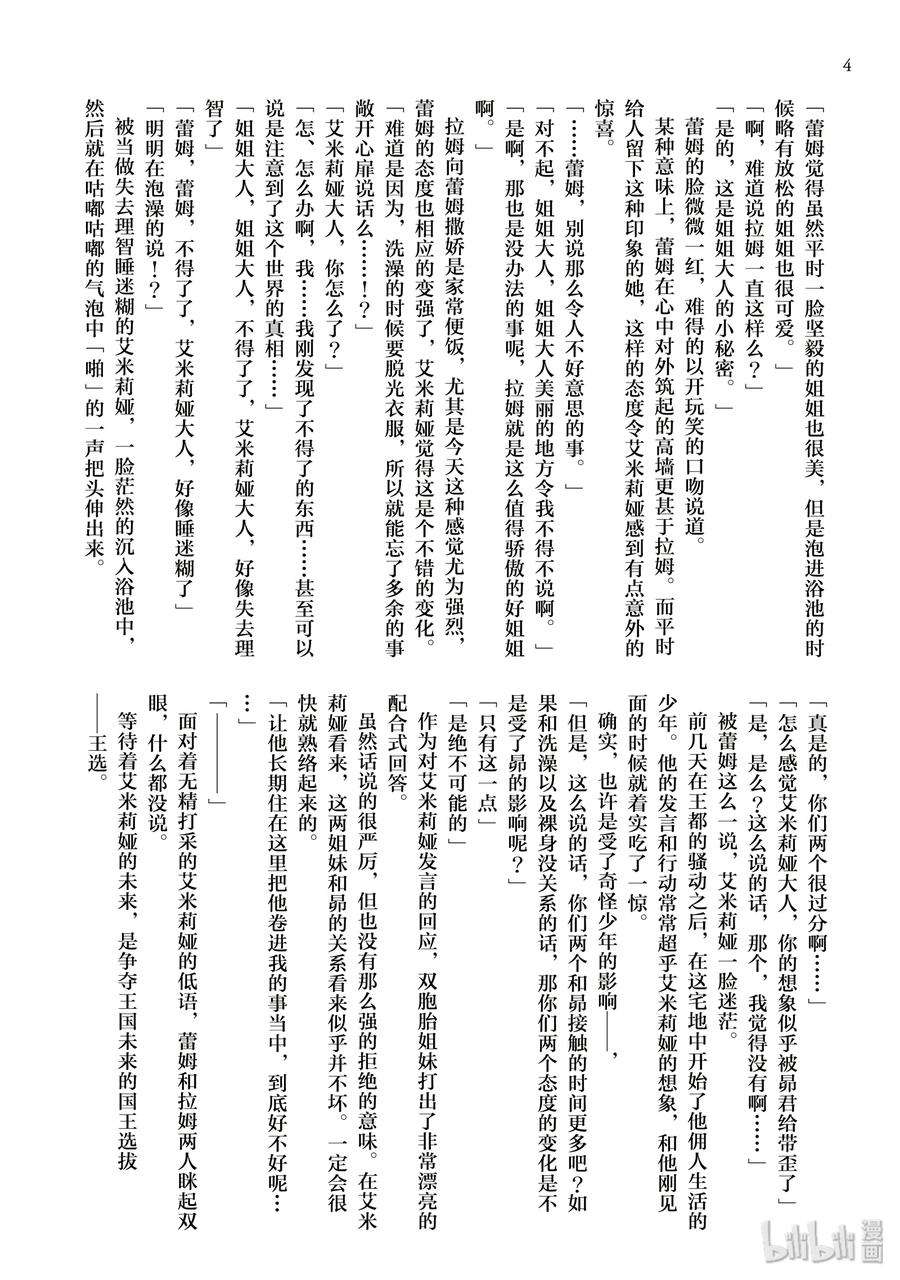 4
「蕾姆觉得虽然平时一脸坚毅的姐姐也很美，但是泡进浴池的时
候略有放松的姐姐也很可爱。」
「啊，难道说拉姆一直这样么？」
「是的，这是姐姐大人的小秘密。」
蕾姆的脸微微一红，难得的以开玩笑的口吻说道。
某种意味上，蕾姆在心中对外筑起的高墙更甚于拉姆。而平时
给人留下这种印象的她，这样的态度令艾米莉娅感到有点意外的
惊喜。
「……蕾姆，别说那么令人不好意思的事。」
「对不起，姐姐大人，姐姐大人美丽的地方令我不得不说啊。」
「是啊，那也是没办法的事呢，拉姆就是这么值得骄傲的好姐姐
啊。」
拉姆向蕾姆撒娇是家常便饭，尤其是今天这种感觉尤为强烈，
蕾姆的态度也相应的变强了，艾米莉娅觉得这是个不错的变化。
「难道是因为，洗澡的时候要脱光衣服，所以就能忘了多余的事
敞开心扉说话么……！？」
「艾米莉娅大人，你怎么了？」
「怎、怎么办啊，我……我刚发现了不得了的东西……甚至可以
说是注意到了这个世界的真相……」
「姐姐大人，姐姐大人，不得了了，艾米莉娅大人，好像失去理
智了」
「蕾姆，蕾姆，不得了了，艾米莉娅大人，好像睡迷糊了」
「明明在泡澡的说！？」
被当做失去理智睡迷糊的艾米莉娅，一脸茫然的沉入浴池中，
然后就在咕嘟咕嘟的气泡中「啪」的一声把头伸出来。
「真是的，你们两个很过分啊……」
「怎么感觉艾米莉娅大人，你的想象似乎被昴君给带歪了」
「是，是么？这么说的话，那个，我觉得没有啊……」
被蕾姆这么一说，艾米莉娅一脸迷茫。
前几天在王都的骚动之后，在这宅地中开始了他佣人生活的
少年。他的发言和行动常常超乎艾米莉娅的想象，和他刚见
面的时候就着实吃了一惊。
确实，也许是受了奇怪少年的影响——，
「但是，这么说的话，你们两个和昴接触的时间更多吧？如
果和洗澡以及裸身没关系的话，那你们两个态度的变化是不
是受了昴的影响呢？」
「只有这一点」
「是绝不可能的」
作为对艾米莉娅发言的回应，双胞胎姐妹打出了非常漂亮的
配合式回答。
虽然话说的很严厉，但也没有那么强的拒绝的意味。在艾米
莉娅看来，这两姐妹和昴的关系看来似乎并不坏。一定会很
快就熟络起来的。
「让他长期住在这里把他卷进我的事当中，到底好不好呢…
…」
「————」
面对着无精打采的艾米莉娅的低语，蕾姆和拉姆两人眯起双
眼，什么都没说。
等待着艾米莉娅的未来，是争夺王国未来的国王选拔
——王选。
bilibili
漫画